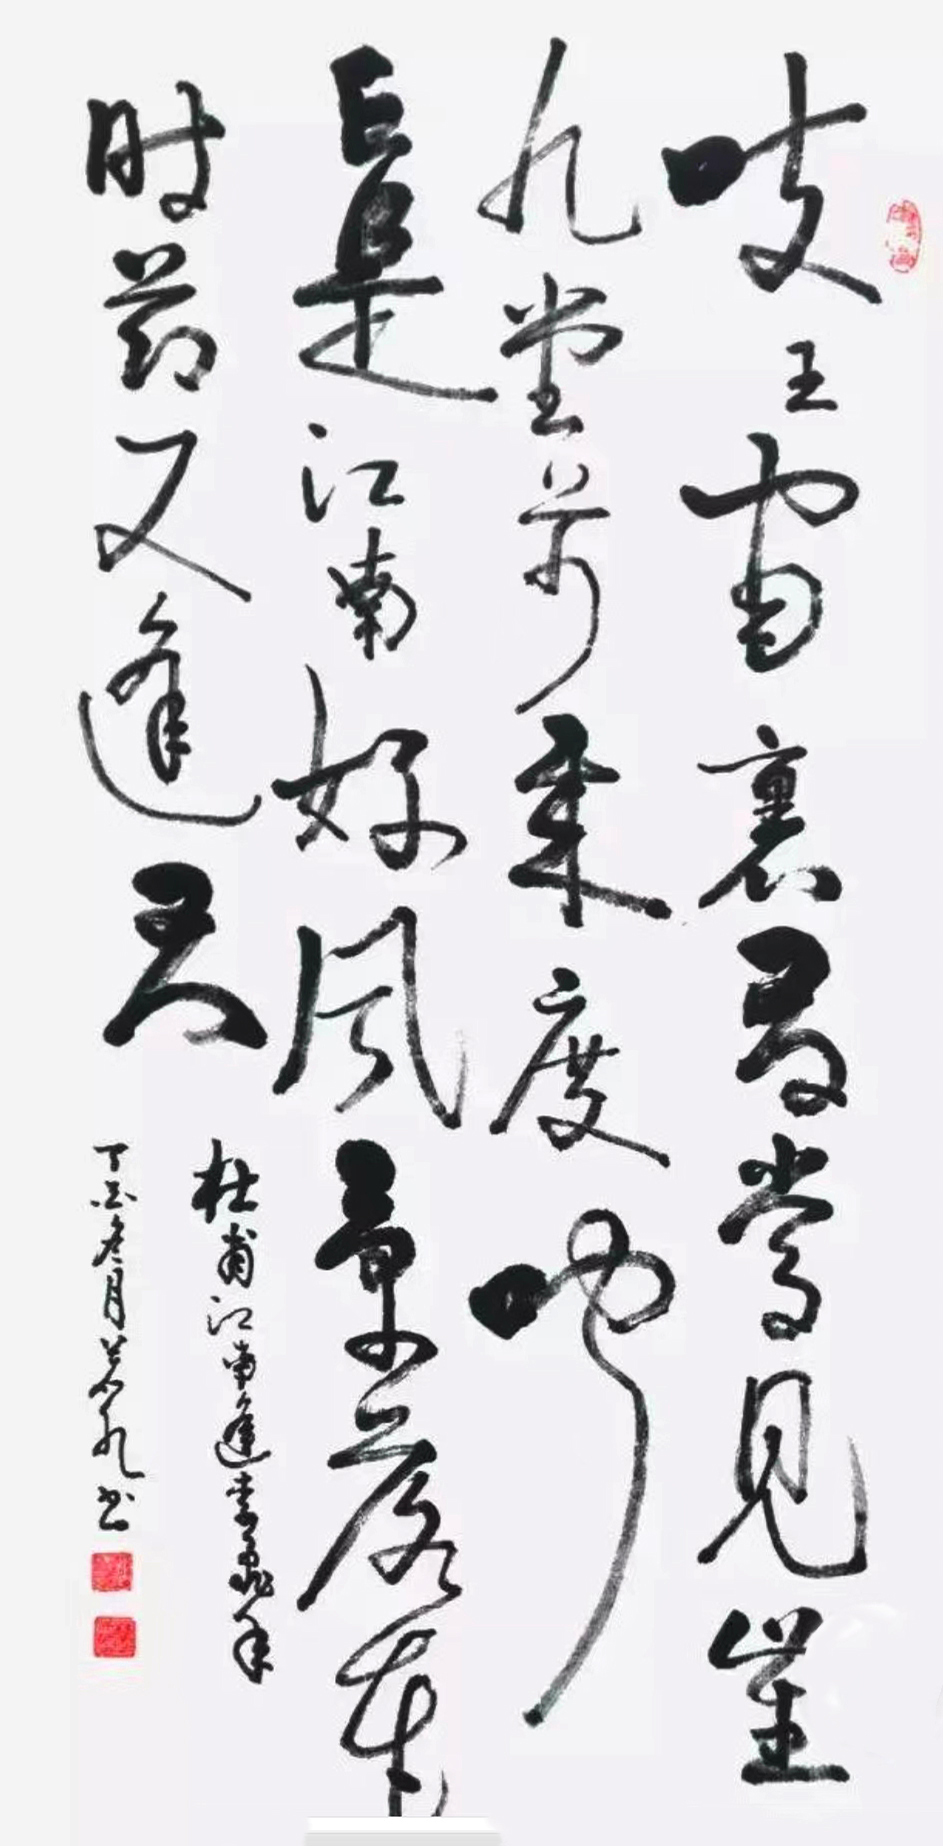 岐王宅裏尋常見崔
九堂前幾度聞
正是江南好风景落花
时節又逢君
杜甫江南逢李龜年
丁酉冬月书